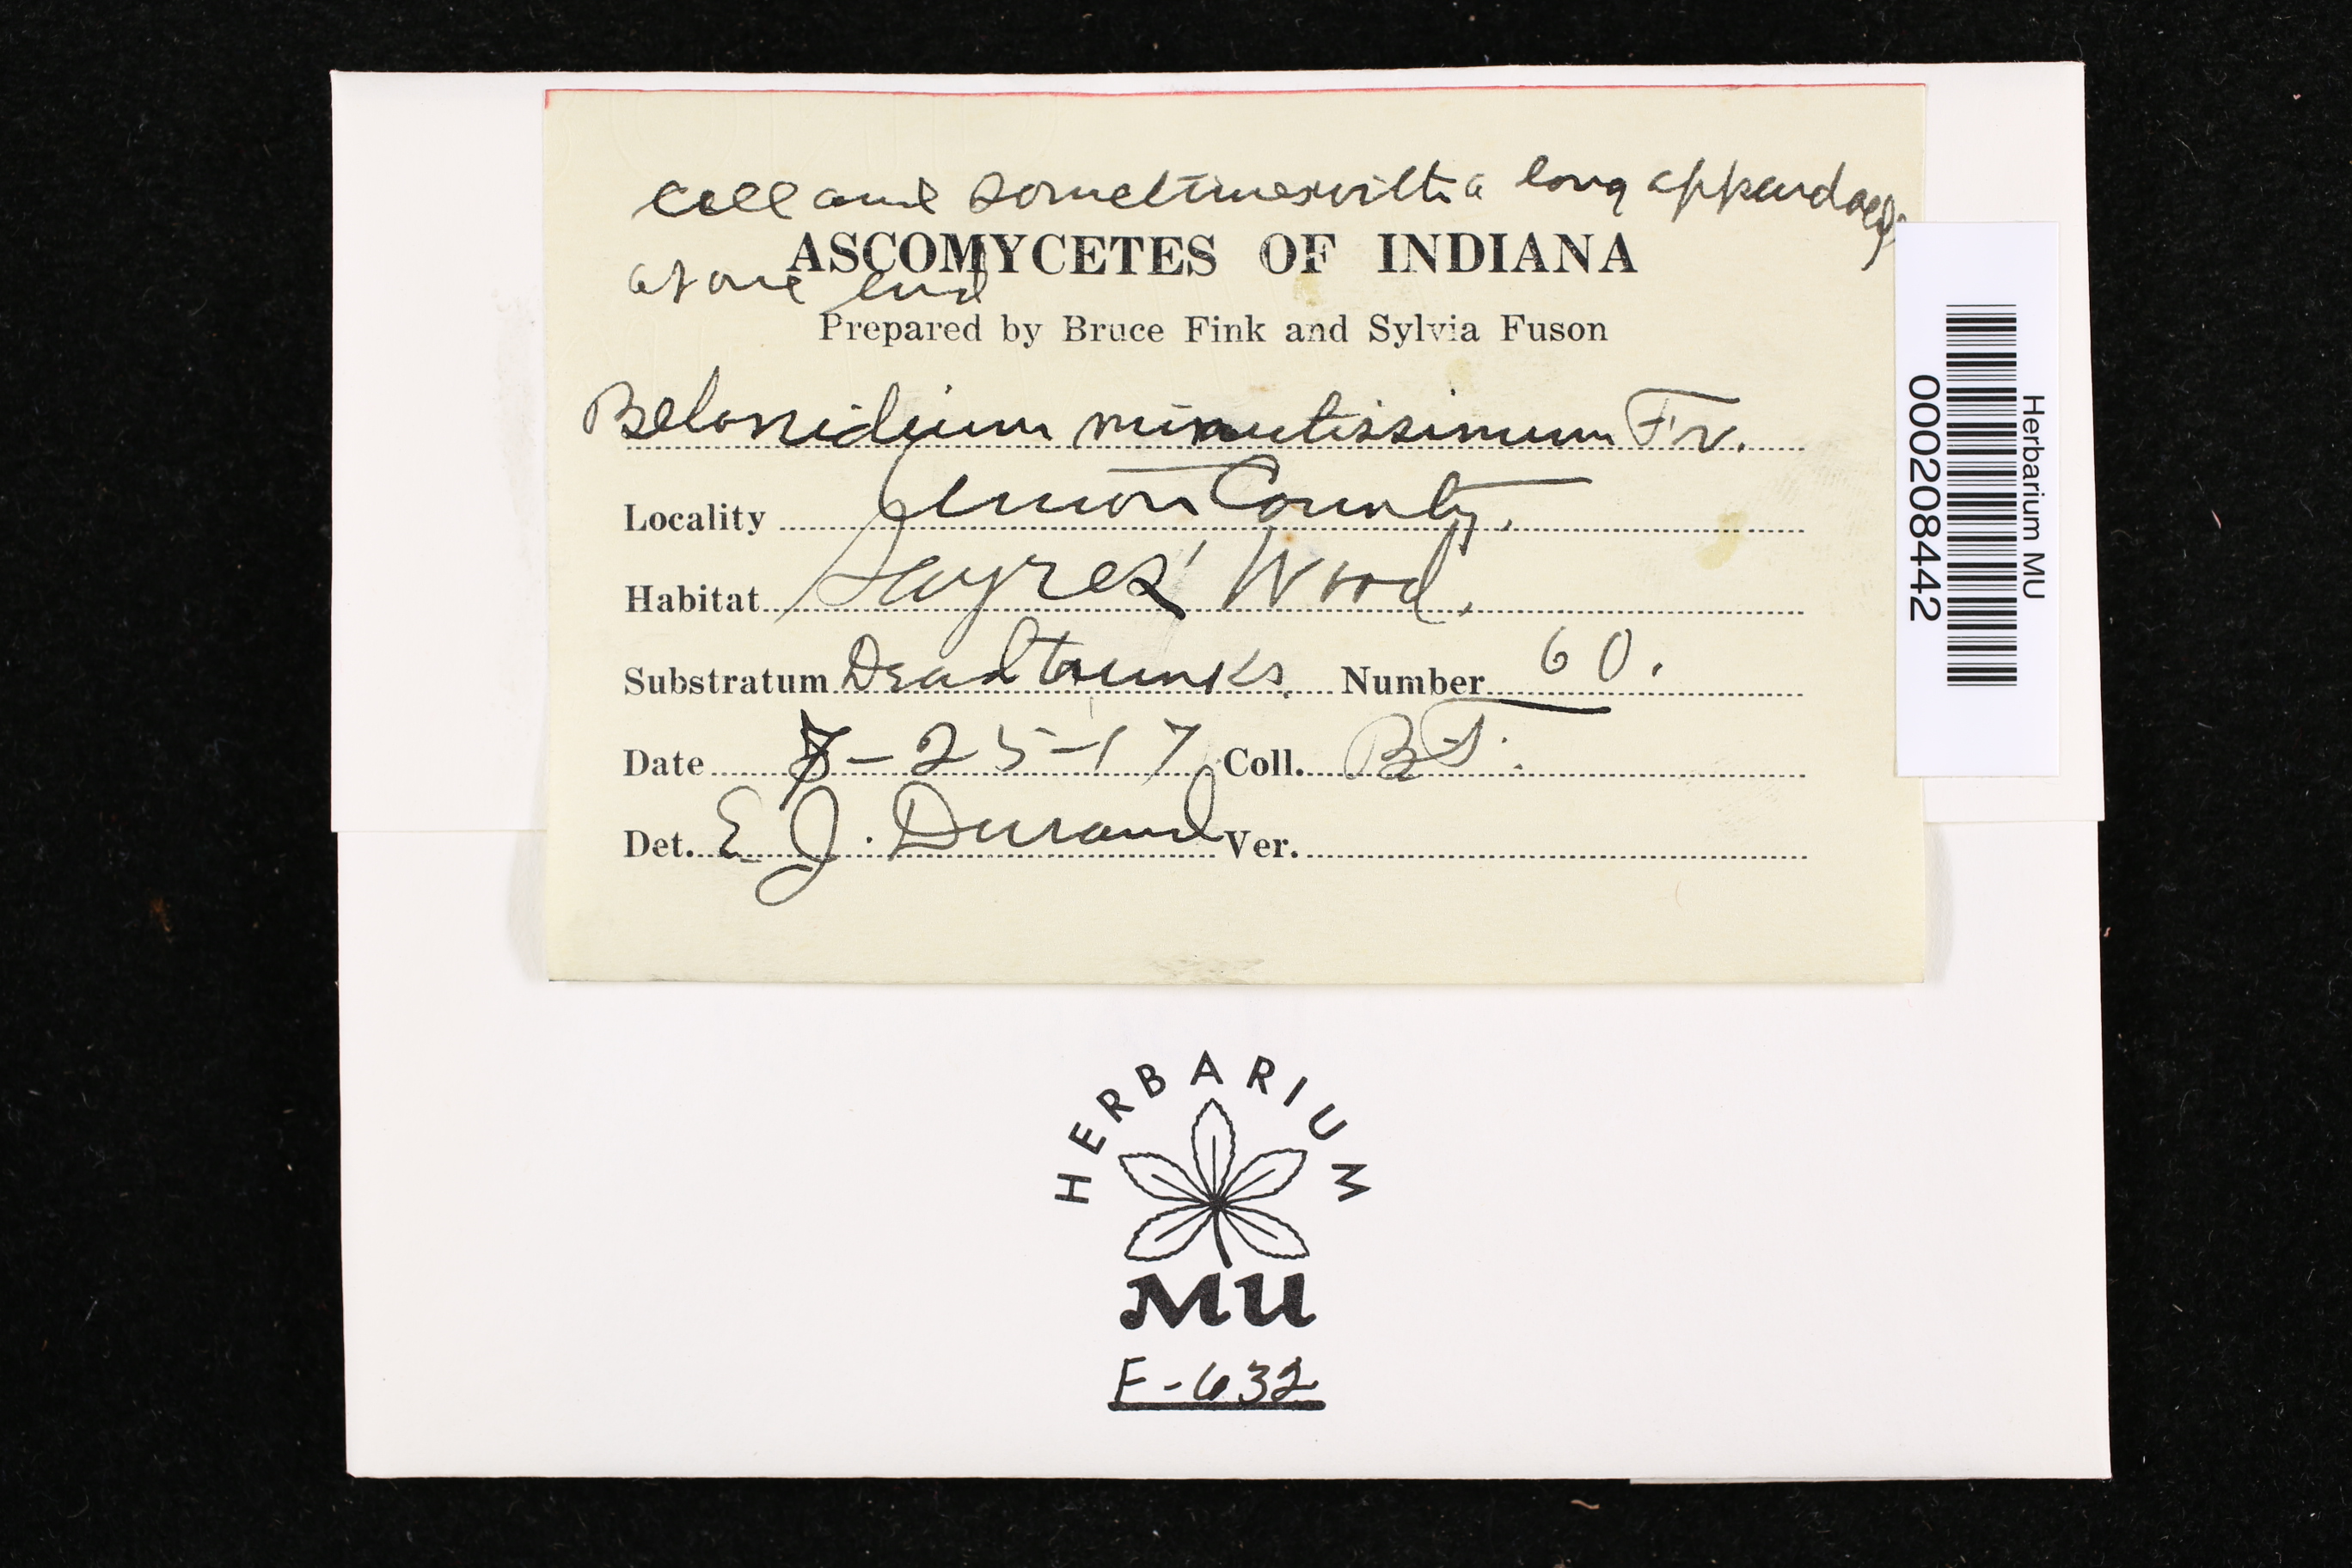 cell and sometimes with a long appendage
at one end
ASCOMYCETES OF INDIANA
Prepared by Bruce Fink and Sylvia Fuson
Belonidium minutissimum Fr.
Locality Union County.
Habitat Sayres' Wood.
Substratum Dead trunks. Number 60.
Date 8-25-17 Coll. B.F.
Det. E J. Durand Ver.
Herbarium MU
000208442
HERBARIUM
MU
F-632